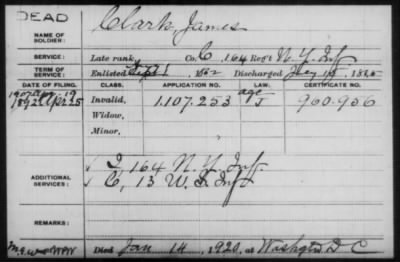 DEAD
NAME OF SOLDIER: Clark, James
SERVICE: Late rank, Co. C, 164 Reg't N.Y. Inf
TERM OF SERVICE: Enlisted Sept 1 1862 Discharged July 15 1865
DATE OF FILING. CLASS. APPLICATION NO. LAW. CERTIFICATE NO.
1907 Apr 19 age
1892 Apr 25 Invalid, 1.107.253 J 960.956
Widow,
Minor,
ADDITIONAL SERVICES: I 164 N.Y. Inf.
C, 13 U.S. Inf
REMARKS:
Died Jan 14, 1920, at Washgtn D C